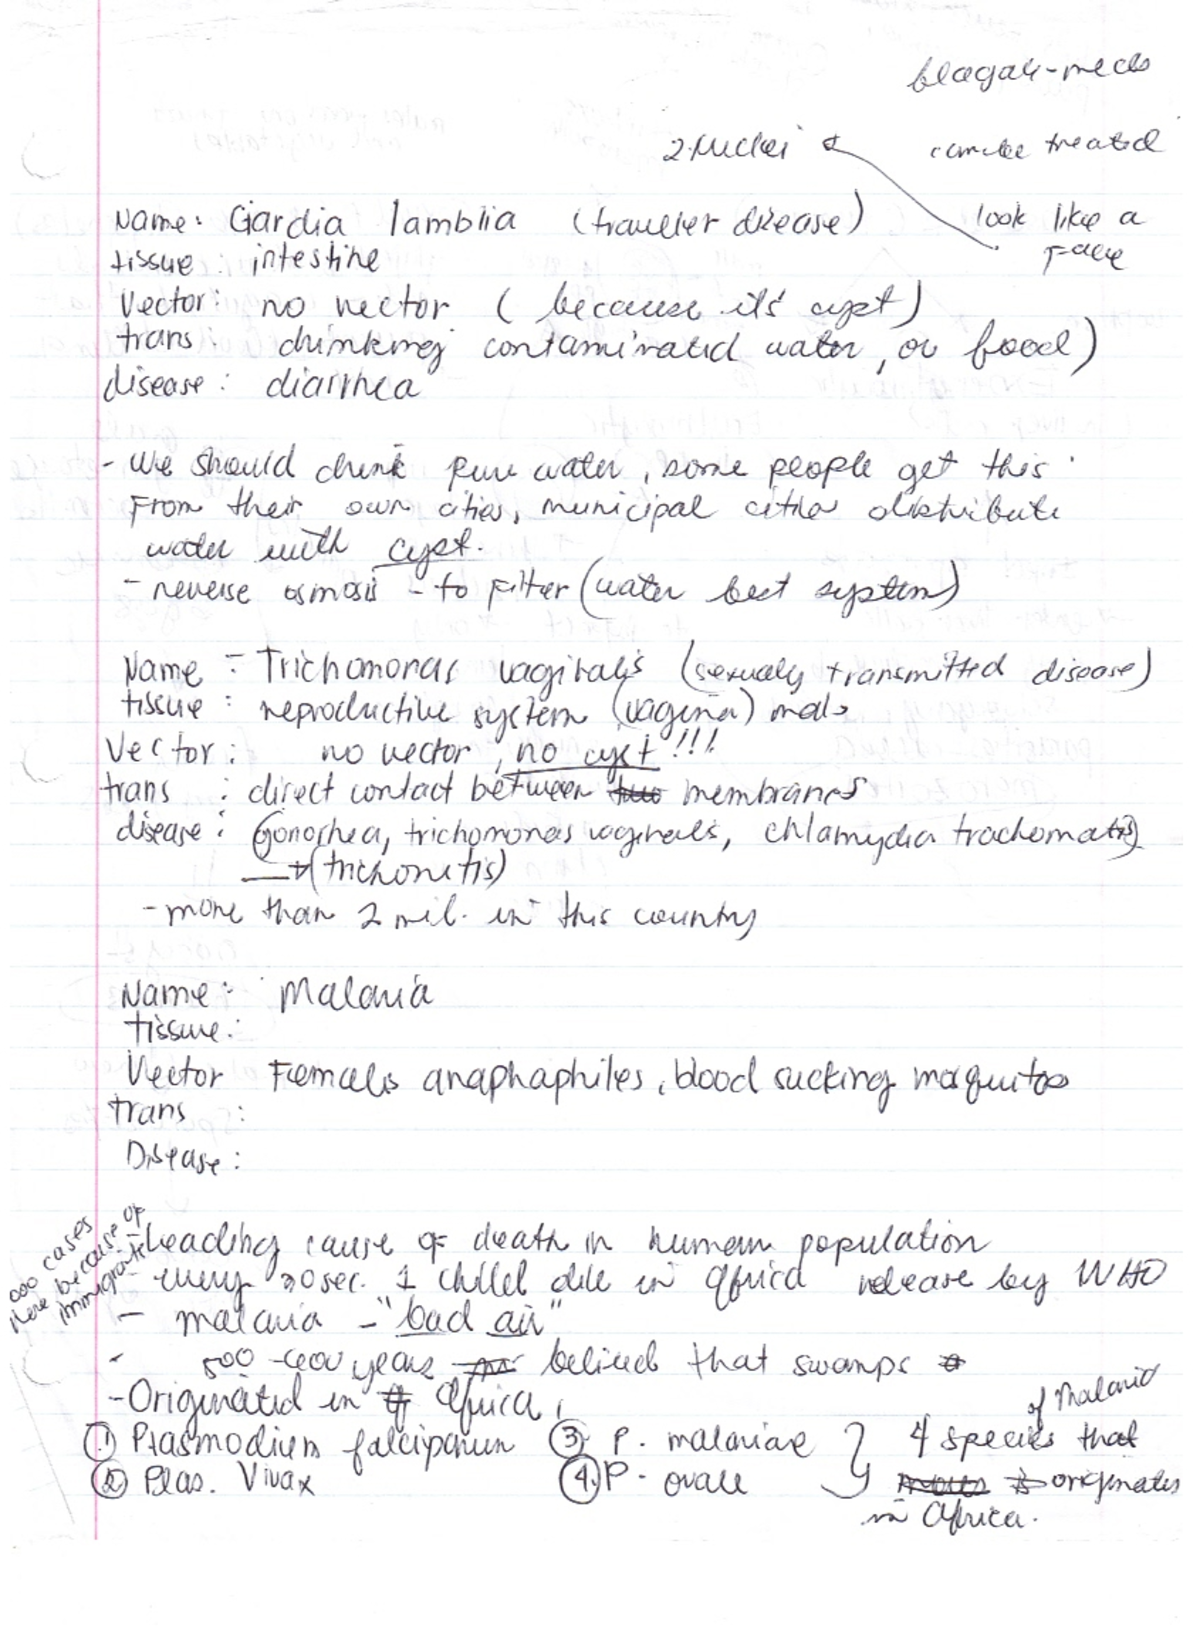 2 nuclei can be treated
Name: Giardia lamblia (traveller disease) look like a
face
tissue: intestine
Vector: no vector (because it's cyst)
trans: drinking contaminated water, or food)
disease: diarrhea
- We should drink pure water, some people get this
From their own cities, municipal cities distribute
water with cyst.
- reverse osmosis - to filter (water best system)
Name - Trichomonas vaginalis (sexually transmitted disease)
tissue: reproductive system (vagina) male
Vector: no vector, no cyst!!!
trans: direct contact between two membranes
disease: Gonorhea, trichomonas vaginalis, chlamydia trachomatis
(trichonitis)
- more than 2 mil. in this country
Name: Malaria
tissue:
Vector Females anaphaphiles, blood sucking mosquitoe
trans :
Disease:
000 cases
here because of
immigration
- Leading cause of death in human population
- every 30 sec. 1 child die in africa release by WHO
- malaria - "bad air"
- 500-600 years believed that swamps
- Originated in africa,
of Malaria
① Plasmodium falciparum ③ P. malariae } 4 species that
② Plas. Vivax ④ P. ovale originates
in Africa.